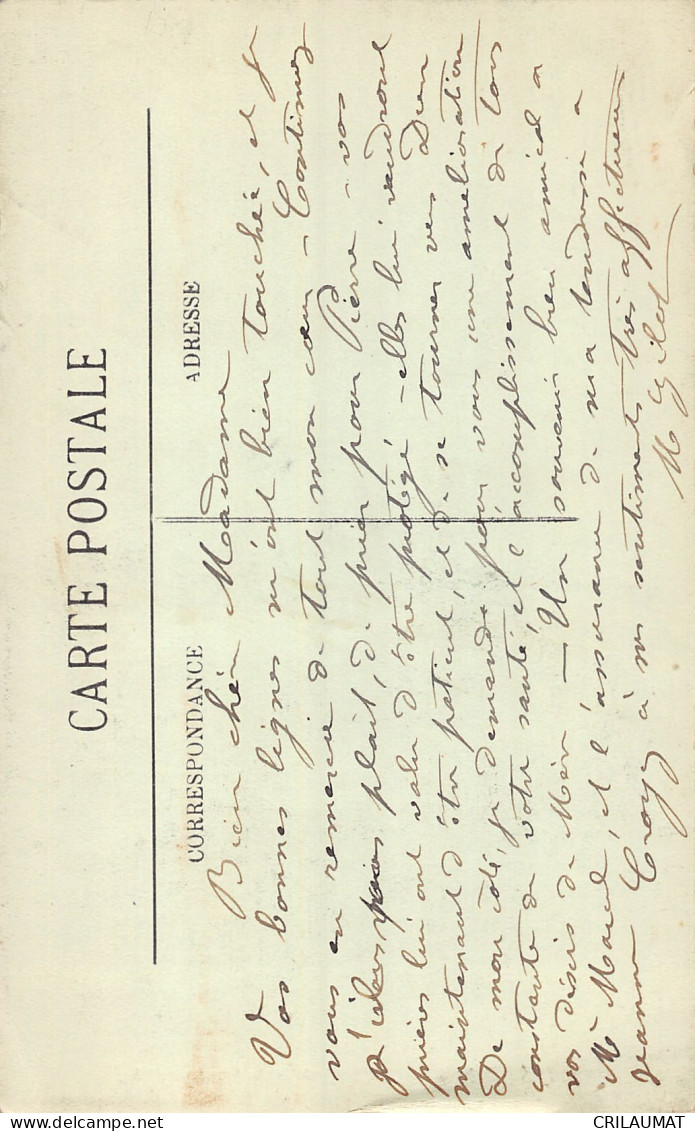 CARTE POSTALE
CORRESPONDANCE
ADRESSE
Bien chère Madame
Vos bonnes lignes m'ont bien touchée, et je
vous en remercie de tout mon cœur – Continuez
s'il vous plait, de prier pour Pierre – vos
prières lui ont valu d'être protégé – elles lui vaudront
maintenant d'être patient, et de se tourner vers Dieu
De mon côté, je demande pour vous une amélioration
constante de votre santé, et l'accomplissement de tous
vos désirs de Mère – Un souvenir bien amical à
Mr Marcel, et l'assurance de ma tendresse à
Jeanne Croyez à mes sentiments très affectueux
CRILAUMAT